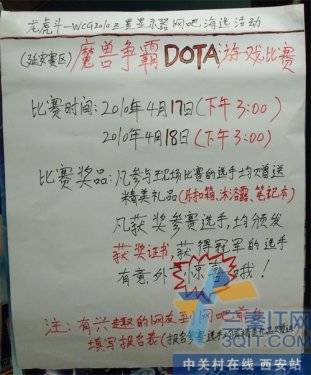 龙虎斗—WCG2010三星显示器网吧海选活动
(延安赛区)魔兽争霸DOTA游戏比赛
比赛时间:2010年4月17日(下午3:00)
2010年4月18日(下午3:00)
比赛奖品:凡参与现场比赛的选手均赠送
精美礼品(沐浴露、笔记本)
凡获奖参赛选手,均颁发
获奖证书,获得冠军的选手
有意外惊喜 我!
注:有兴趣的网友到网吧前
填写报名表(报名参赛选手
IT网
中关村在线 西安站